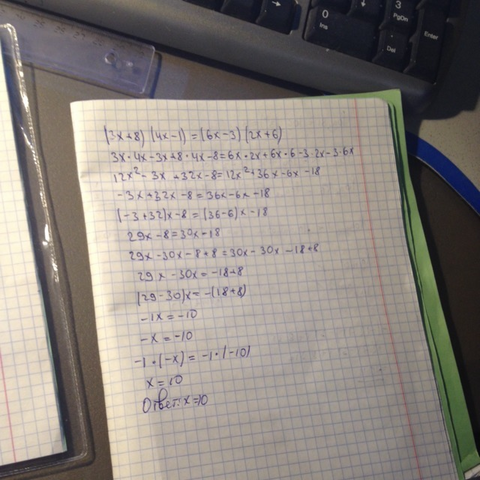 0
Ins
.
Del
3
PgDn
Enter
(3x+8) (4x-1) = (6x-3) (2x+6)
3x·4x-3x+8·4x-8=6x·2x+6x·6-3·2x-3·6x
12x²-3x+32x-8=12x²+36x-6x-18
-3x+32x-8=36x-6x-18
(-3+32)x-8=(36-6)x-18
29x-8=30x-18
29x-30x-8+8=30x-30x-18+8
29x-30x=-18+8
(29-30)x=-(18+8)
-1x=-10
-x=-10
-1·(-x)=-1·(-10)
x=10
Ответ: x=10